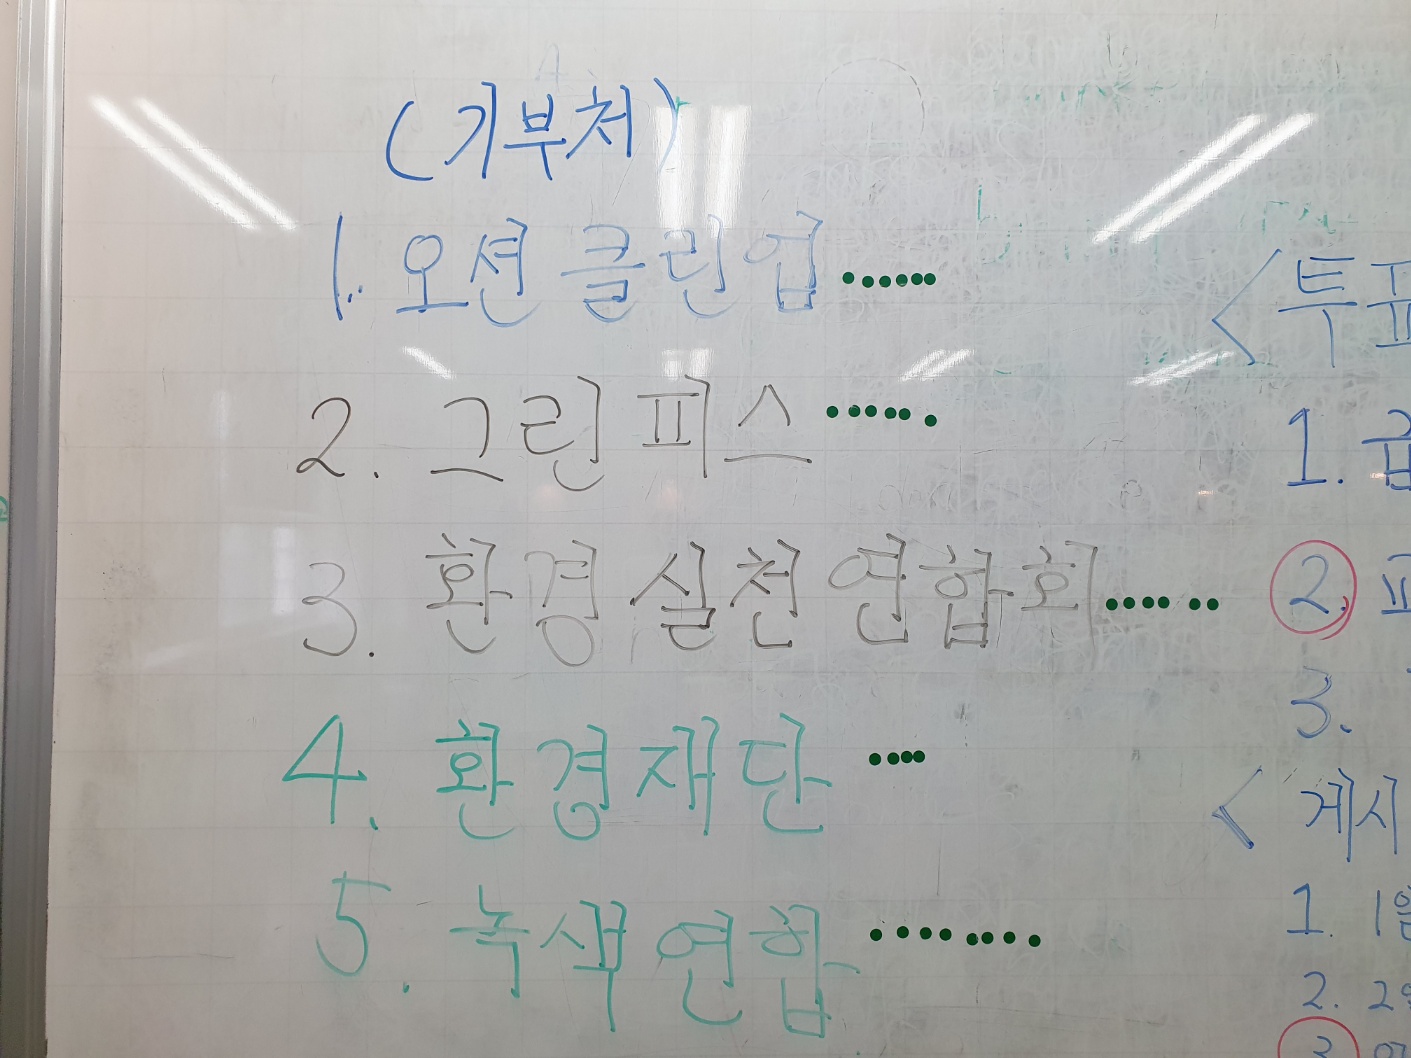 (기부처)
1. 오션 클린업
2. 그린피스
3. 환경실천연합회
4. 환경재단
5. 녹색연합
<투표
1.
2.
3.
<게시
1. 1월
2. 2월
3.